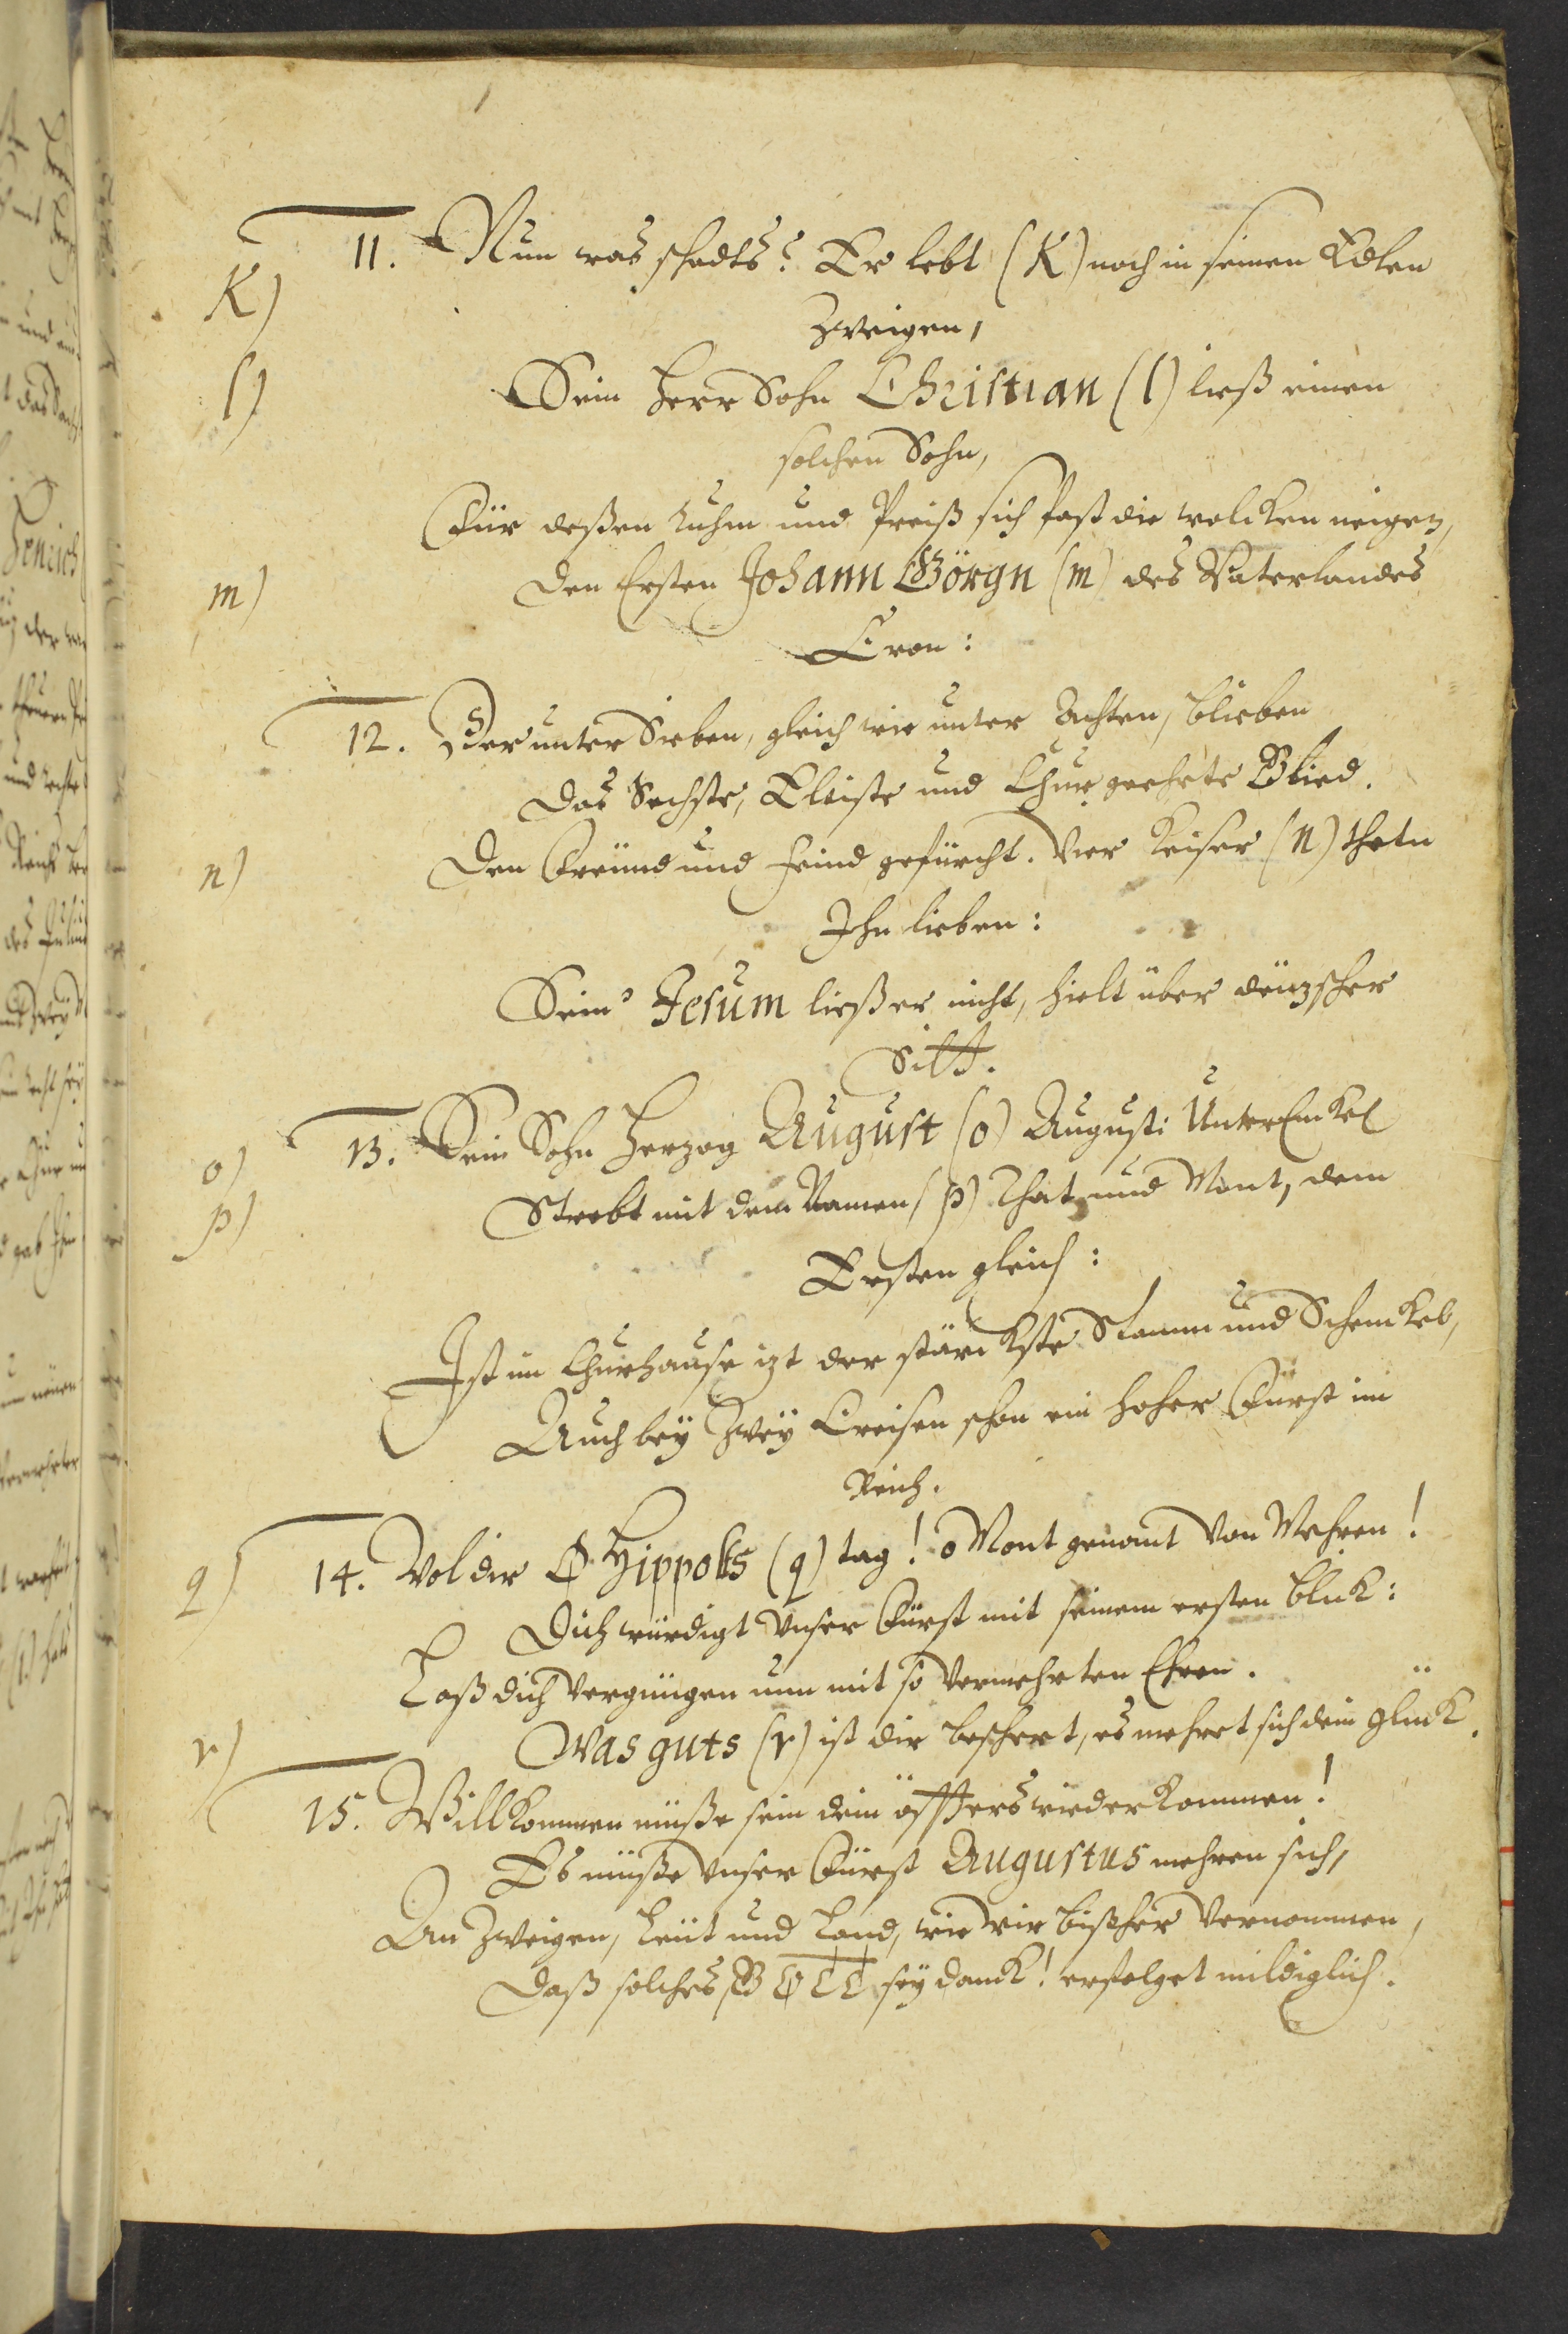 11. Nun was schadts? Er lebt (K) noch in seinen Edlen
K)
Zweigen,
l)
Sein Herr Sohn Christian (l) ließ einen
solchen Sohn,
Für deßen Ruhm und Preiß sich fast die wolcken neigen,
m)
Den Ersten Johann Görgn (m) des Vaterlandes
Cron:
12. Der unter Sieben, gleich wie unter Achten, blieben
Das Sechste, Eltiste und Chur geehrte Glied.
n)
Den Freünd und Feind gefürcht. Vier Keiser (n) theten
Ihn lieben:
Sein' Jesum ließ er nicht, hielt über deüzscher
Sitt.
o)
13. Sein Sohn Herzog August (o) Augusti UnterEnckel
p)
Strebt mit dem Namen (p) That und Mont, dem
Ersten gleich:
Ist im Churhause izt der stärckste Stamm und Schenckel,
Auch bey Zwey Creisen schon ein hoher Fürst im
Reich.
q)
14. Wol dir O Hippolts (q) tag! o Mont genant von Mehren!
Dich würdigt unser Fürst mit seinem ersten blick:
Laß dich vergnügen nun mit so vermehrten Ehren.
r)
Was guts (r) ist dir beschert, es mehret sich dein glück.
15. Willkommen müße sein dein öffters wiederkommen!
Es müße unser Fürst Augustus mehren sich,
An Zweigen, Leüt und Land, wie wir bißher vernommen,
Daß solches GOTT sey danck! erfolget mildiglich.